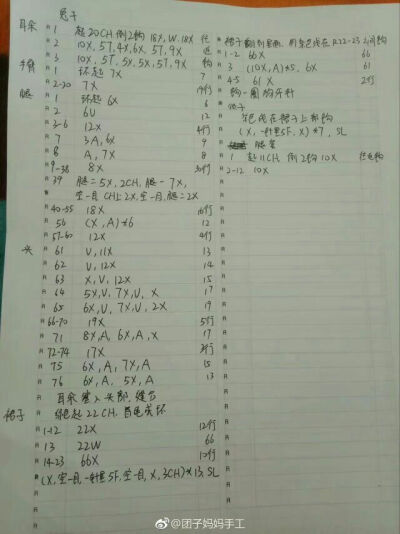 兔子
耳朵 R 1 起20CH, 倒2钩 18X, W, 18X 往
R 2 10X, 5T, 4X, 6T, 5T, 9X 返
R 3 10X, 5T, 5X, 5T, 9X 钩
手臂 R 1 环起 7X 7
R 2-20 7X 19行
腿 R 1 环起 6X 6
R 2 6V 12
R 3-6 12X 4行
R 7 3A, 6X 9
R 8 A, 7X 8
R 9-38 8X 30行
R 39 腿=5X, 2CH, 腿-7X,
空一目, CH上2X, 空一目, 腿=2X
R 40-55 18X 16行
R 56 (X, A)*6 12
R 57-60 12X 4行
头 R 61 V, 11X 13
R 62 V, 12X 14
R 63 X, V, 12X 15
R 64 5X, V, 7X, V, X 17
R 65 6X, V, 7X, V, 2X 19
R 66-70 19X 5行
R 71 8X, A, 6X, A, X 17
R 72-74 17X 3行
R 75 6X, A, 7X, A 15
R 76 6X, A, 5X, A 13
耳朵塞入头部, 缝合
裙子 绿色起22CH, 首尾成环
R 1-12 22X 12行
R 13 22W 66
R 14-23 66X 10行
(X, 空一目, 一针里5F, 空一目, X, 3CH)*13, SL
裙子翻到里面, 用灰色线在R22-23之间钩
R 1-2 66X 66
R 3 (10X, A)*5, 6X 61
R 4-5 61X 2行
钩一圈狗牙针
领子
灰色线在裙子上部钩
(X, 一针里5F, X)*7, SL
R 1 起11CH, 倒2钩 10X 往返钩
R 2-12 10X
@团子妈妈手工